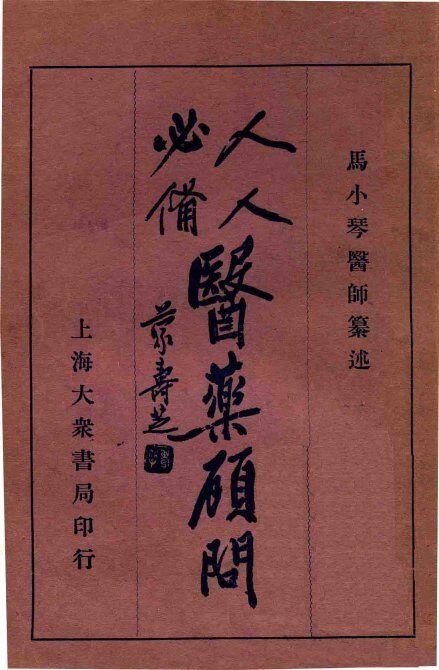 馬小琴醫師纂述
人人
必備
醫藥顧問
上海大衆書局印行